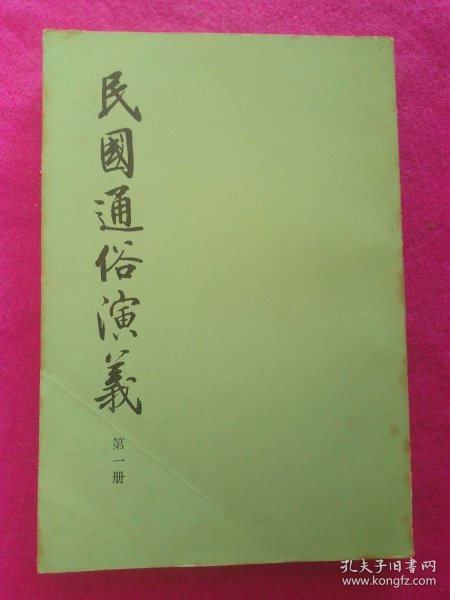 民國通俗演義
第一册
孔夫子旧书网
www.kongfz.com